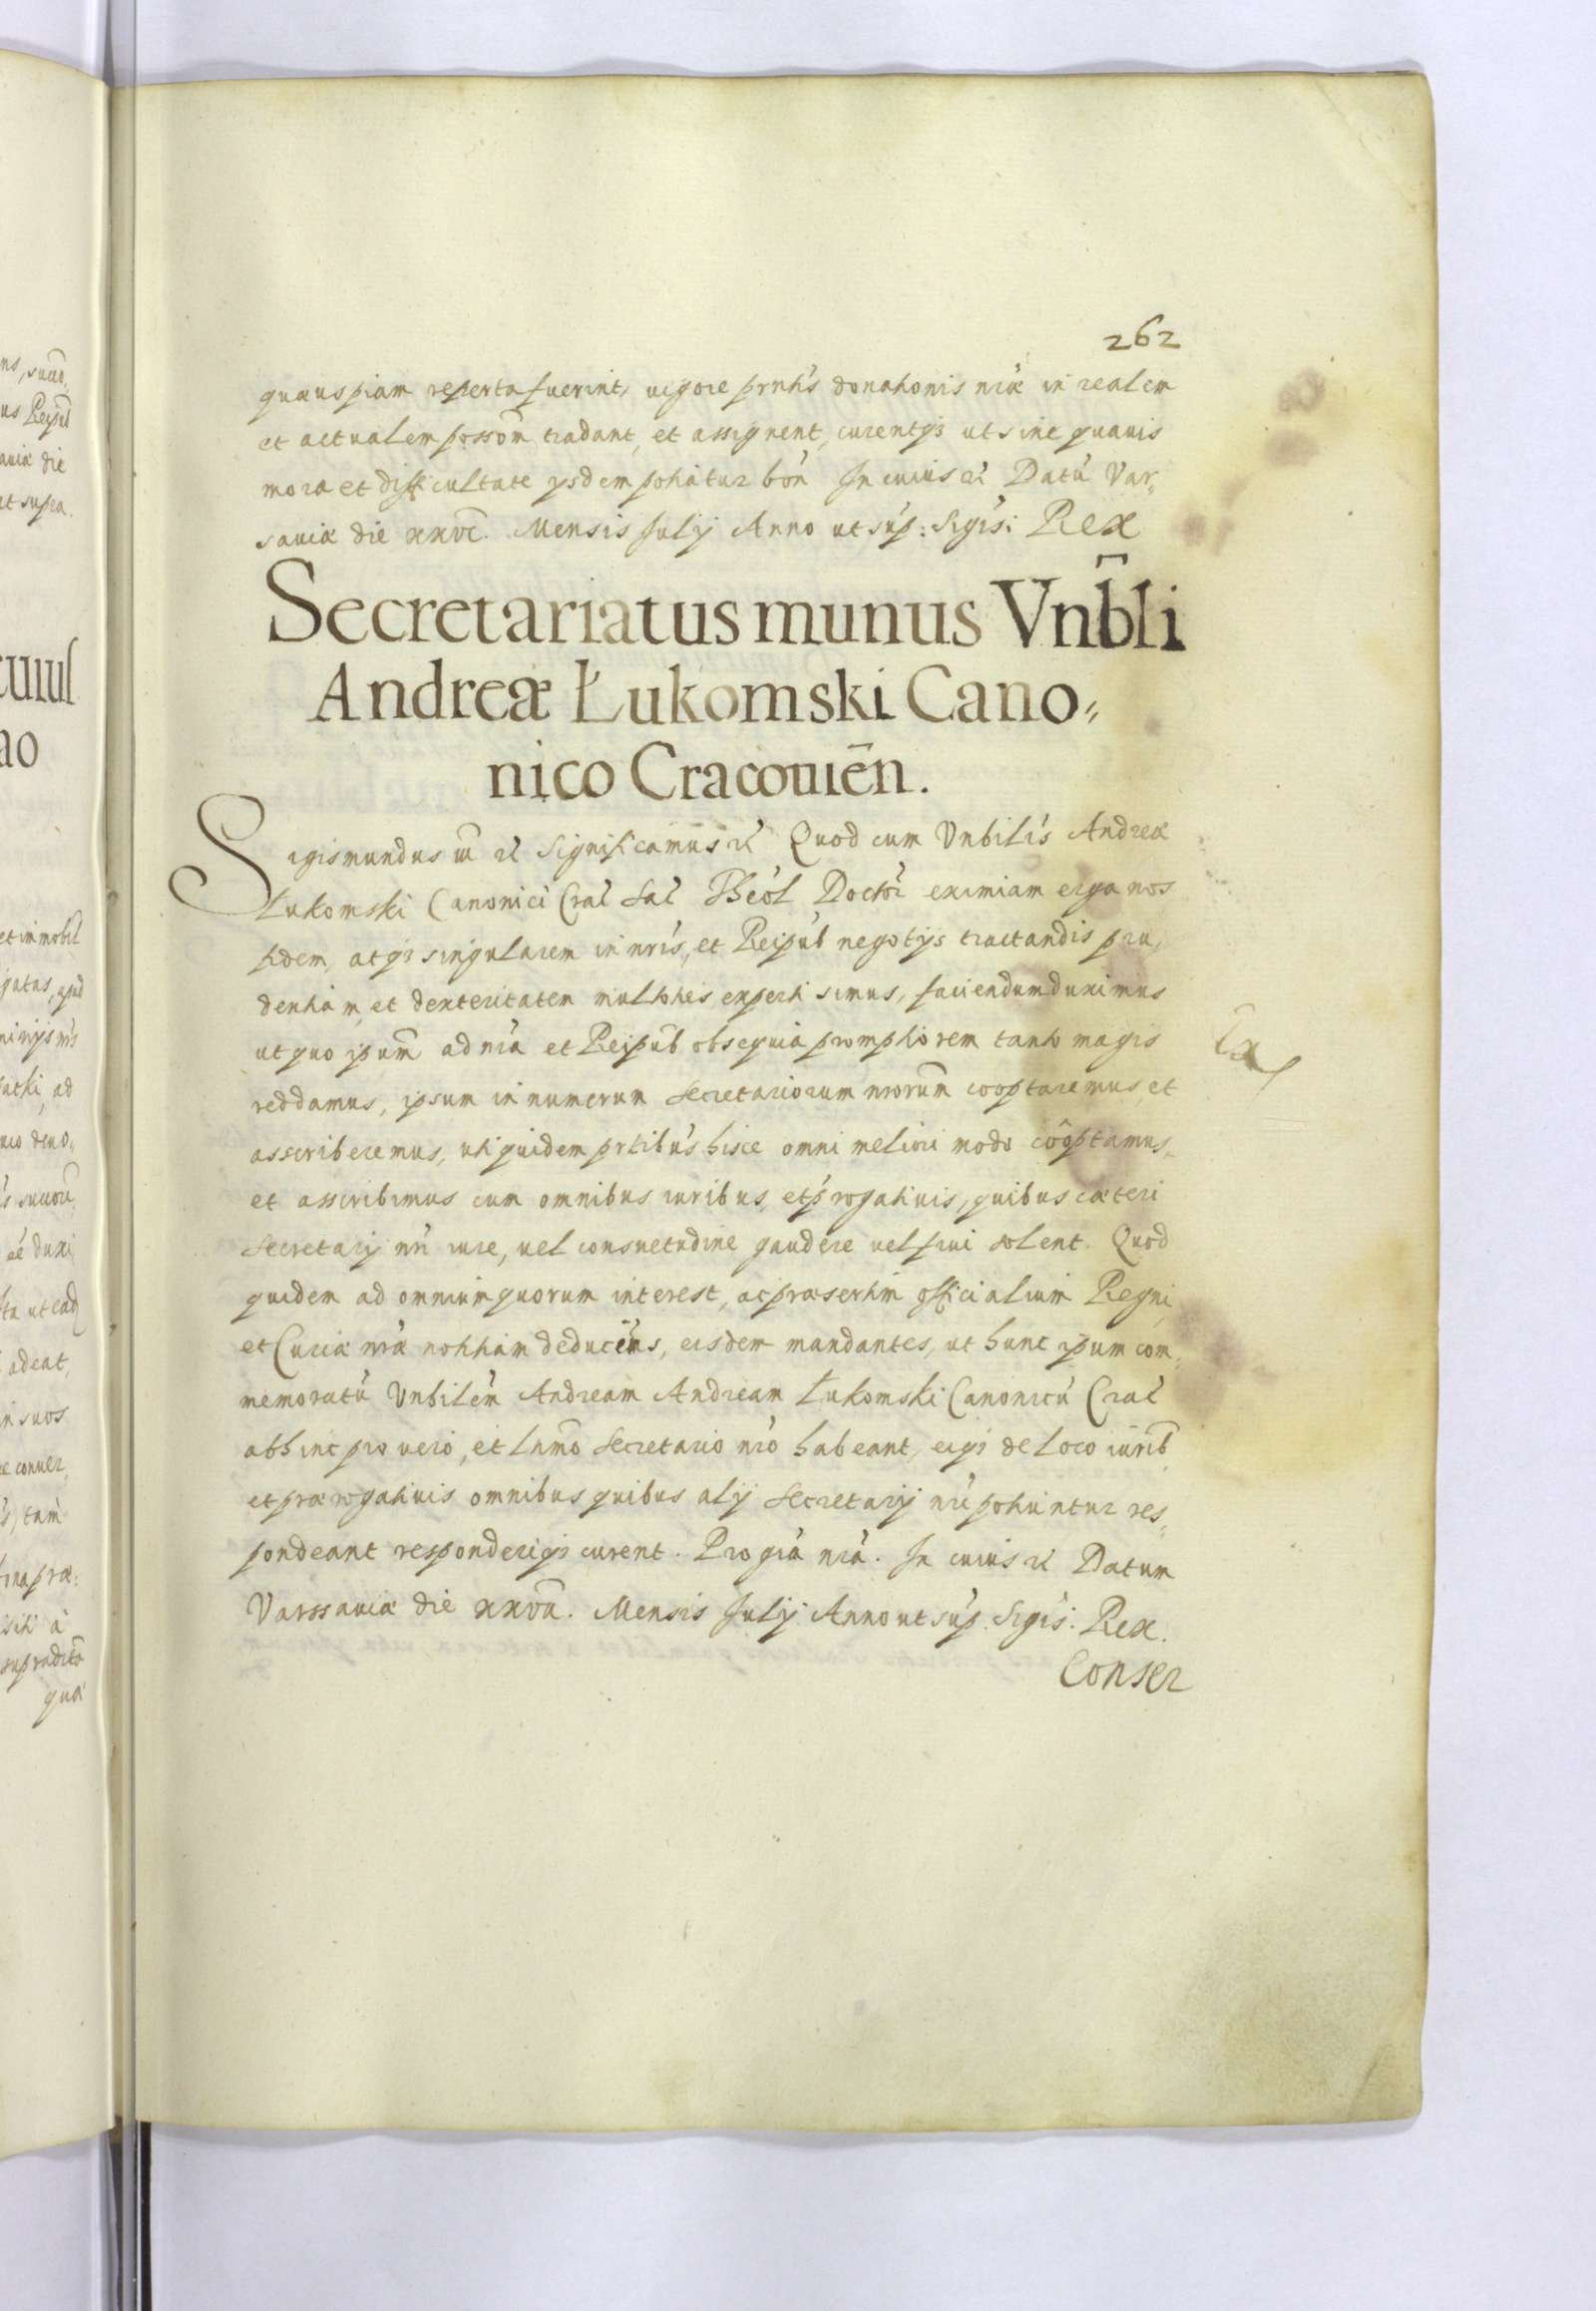 262
quæuspiam reperta fuerint, vigore prntis donationis nræ in realem
et actualem posson tradant, et assignent, curentq3 ut sine quavis
mora et difficultate ijsdem potiatur bon In cuius rei Datū Var-
saviæ die xxvi. Mensis Julij Anno ut sup: Sigis: Rex
Secretariatus munus Vnbli
Andreæ Łukomski Cano-
nico Cracouiēn.
Sigismundus III etc Significamus etc Quod cum Vnbilis Andreæ
Łukomski Canonici Crac Sac Theol Doctor eximiam erga nos
fidem, atq3 singularem in nris, et Reipub negotijs tractandis pru-
dentiam, et dexteritatem multoties experti simus, faciendum duximus
ut quo ipum ad nra et Reipub obsequia promptiorem tanto magis
reddamus, ipsum in numerum Secretariorum nrorum cooptaremus, et
asscriberemus, uti quidem prtibus hisce omni meliori modo cooptamus,
et asscribimus cum omnibus iuribus, et prærogativis, quibus cæteri
Secretarij nri iure, vel consuetudine gaudere vel frui solent. Quod
quidem ad omnium quorum interest, ac præsertim officialium Regni,
et Curiæ nræ notitiam deducimus, eisdem mandantes, ut hunc ipum com-
memoratū Vnbilem Andream Andream Łukomski Canonicū Crac
abhinc pro vero, et Lnmo Secretario nro habeant, eiq3 de loco iurib
et prærogativis omnibus quibus alij Secretarij nri potiuntur res-
pondeant responderiq3 curent. Pro gra nra. In cuius rei Datum
Varssaviæ die xxvii. Mensis Julij Anno ut sup. Sigis: Rex.
Conser